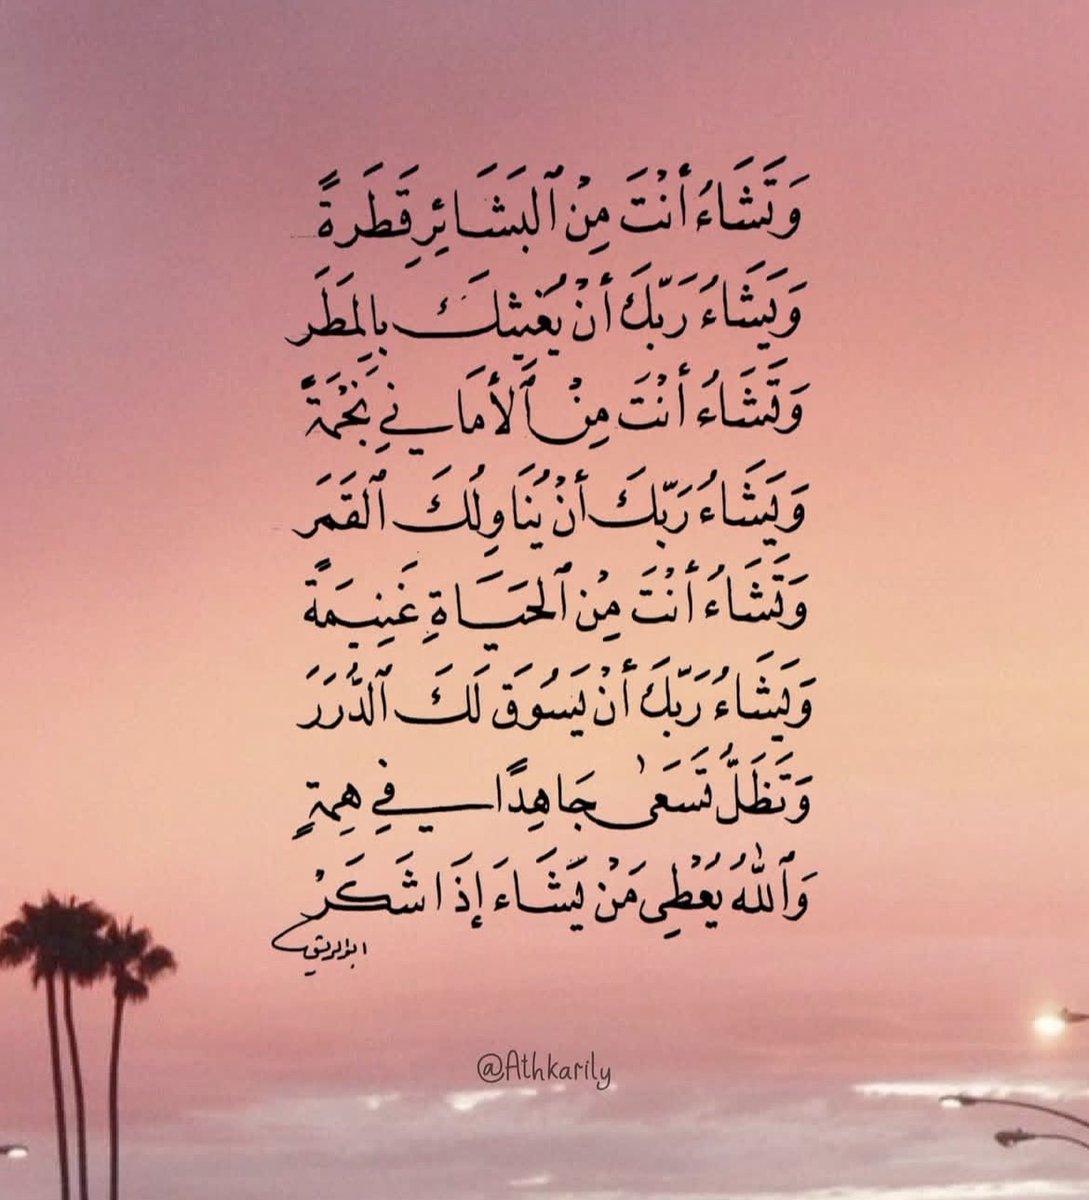 وَتَشَاءُ أَنْتَ مِنَ ٱلبَشَائِرِ قِطَرَةً
وَيَشَاءُ رَبُّكَ أَنْ يُغِيثَكَ بِالمَطَر
وَتَشَاءُ أَنْتَ مِنَ ٱلأَمَانِي نَجْمَةً
وَيَشَاءُ رَبُّكَ أَنْ يُنَاوِلَكَ ٱلقَمَرَ
وَتَشَاءُ أَنْتَ مِنَ ٱلحَيَاةِ غَنِيمَةً
وَيَشَاءُ رَبُّكَ أَنْ يَسُوقَ لَكَ ٱلدُّرَرَ
وَتَظَلُّ تَسعَىٰ جَاهِدًا فِي هِمةٍ
وَٱللّٰهُ يُعْطِي مَنْ يَّشَاءَ إِذَا شَكَرْ
@Athkarily